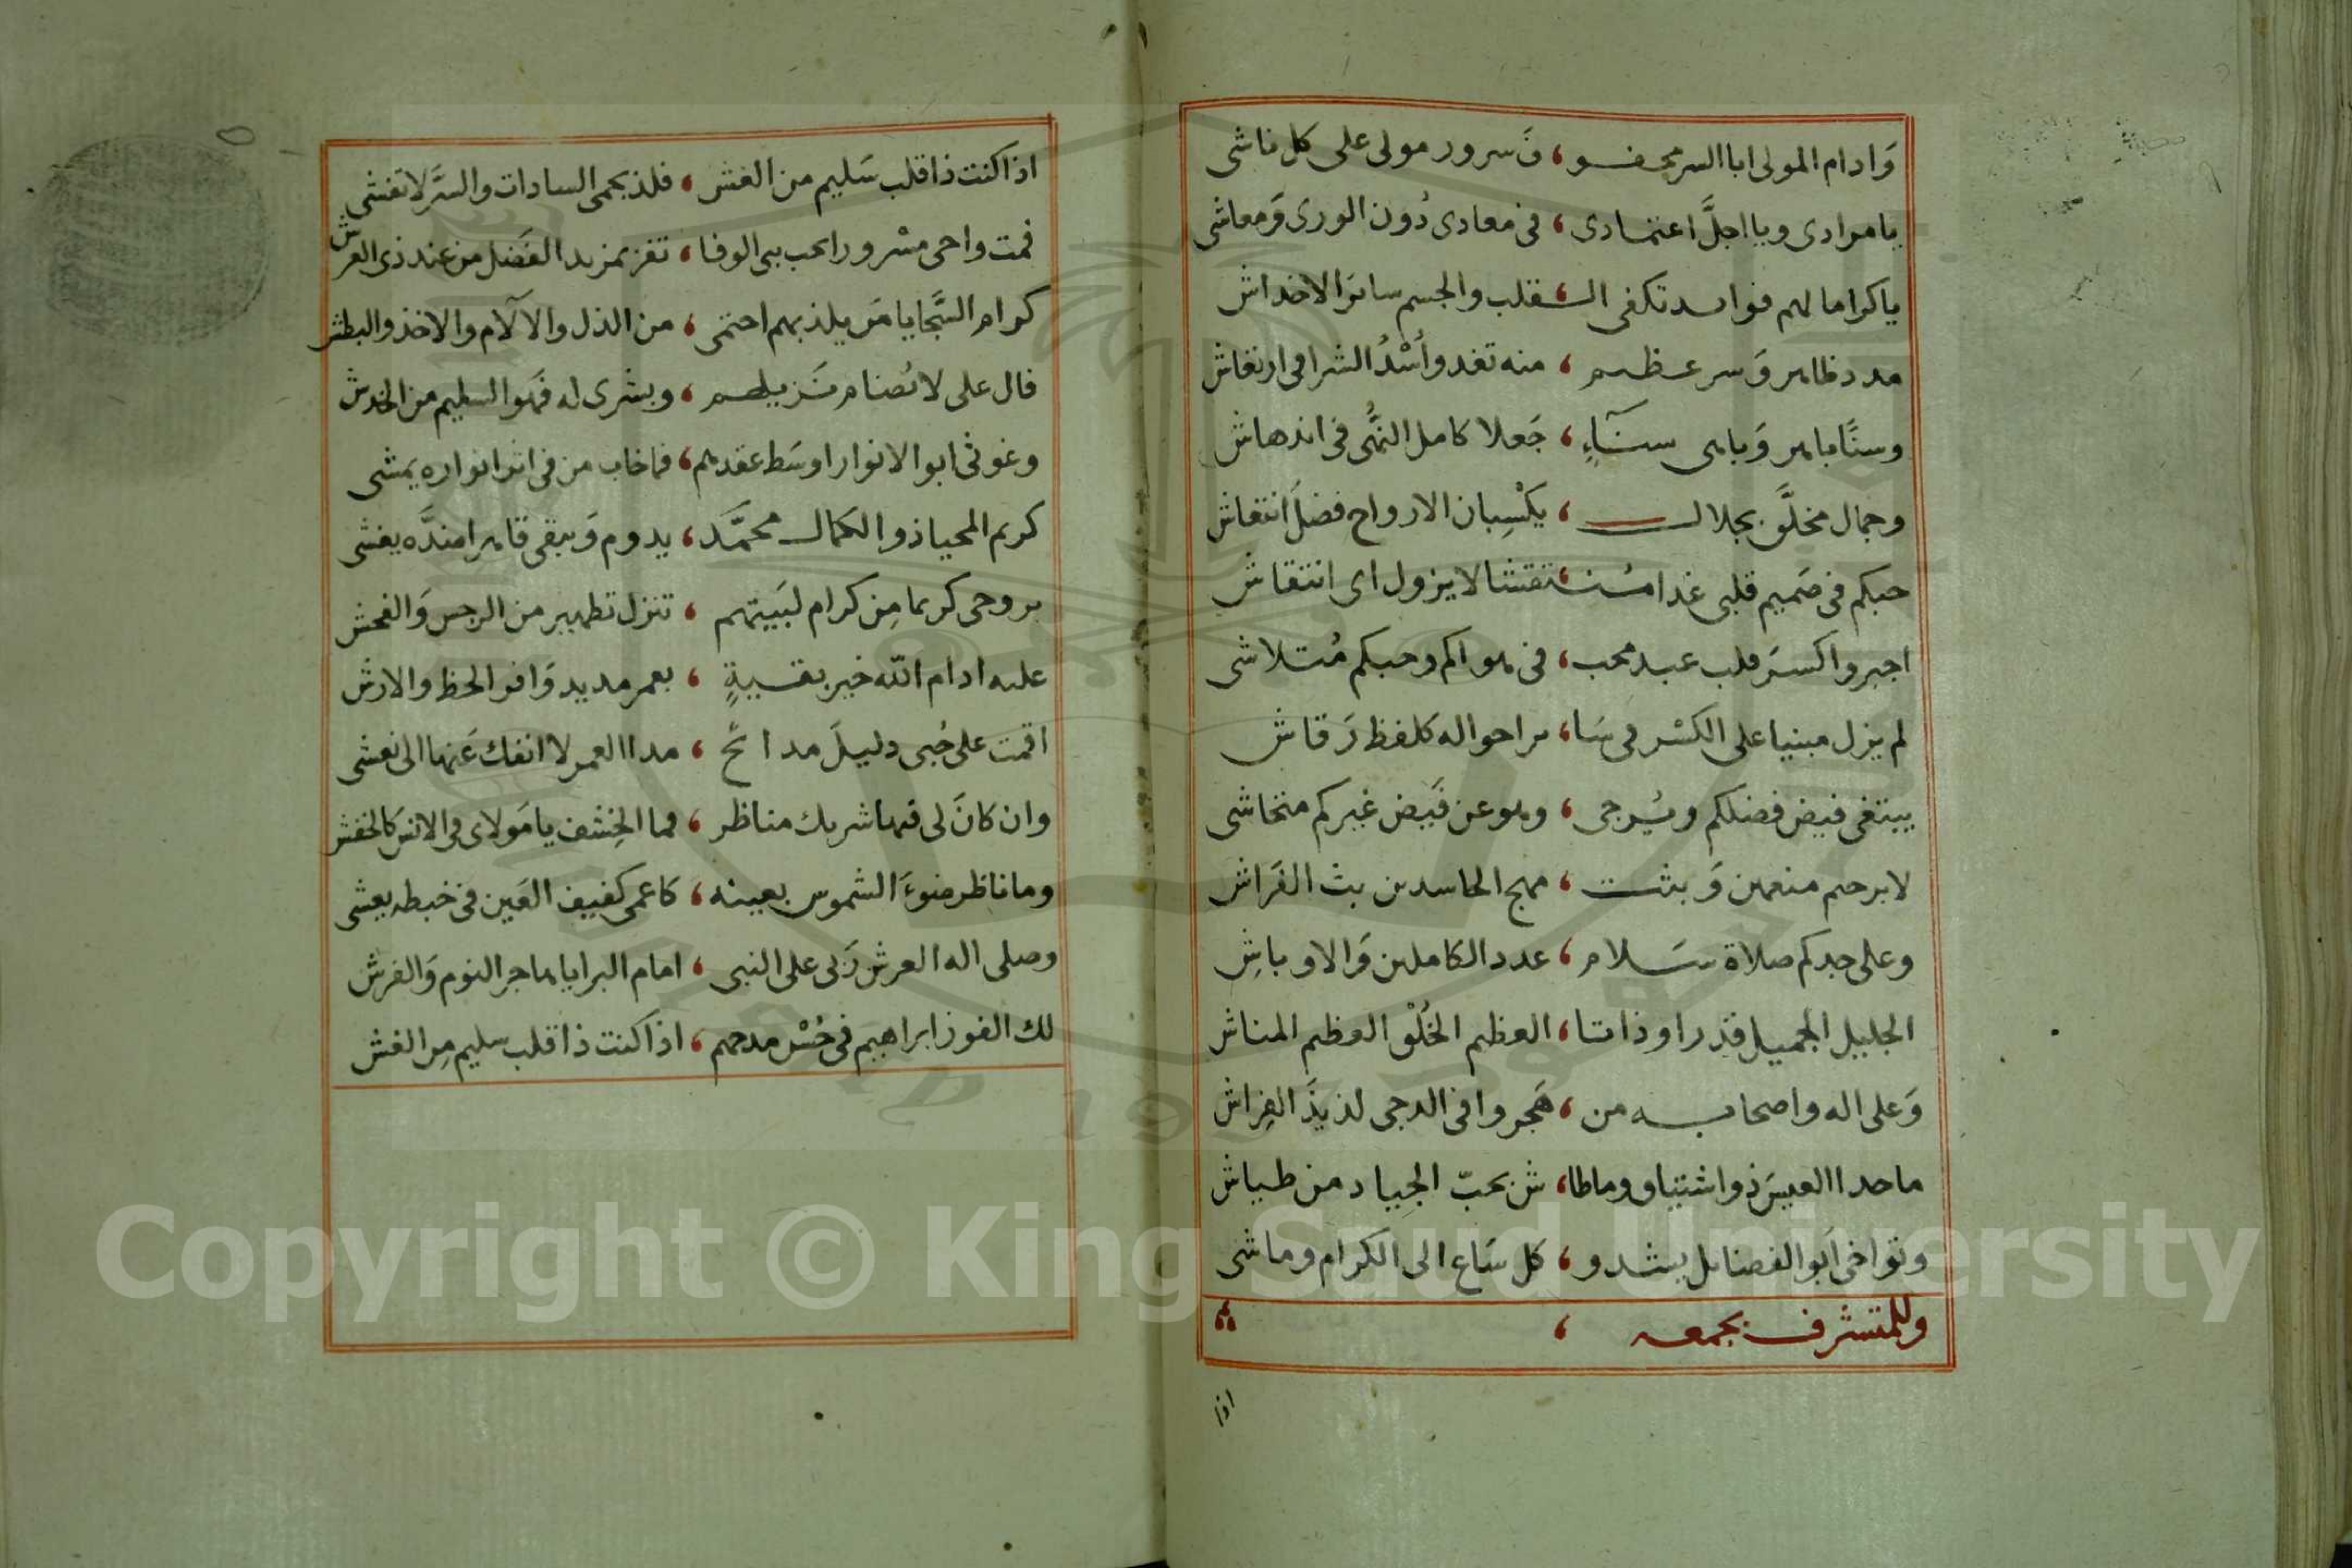 وَادام المولى ابا السر محفو ، فَ سرور مولى على كل ناشى
يا مرادى ويا اجلَّ اعتمادى ، فى معادى دُون الورى وَمعاشى
يا كراما لهم فوايد تكفى الـ ، قلب والجسم سائر الاخداش
مدد ظاهر وَسر عظيم ، منه تغدو اُسْدُ الشرا فى ارتعاش
وسنًا باهر وَباهى سنآءٍ ، جَعلا كامل النُّهَى فى اندهاش
وجمال مخلَّق بجلال ، يكْسِبان الارواح فضلَ انتعاش
حبكم فى صَميم قلبى غدا مُنـ ، تقشا لا يزول اى انتقاش
اجبروا كسرَ قلب عبد محب ، فى هواكم وحبكم مُتلاشى
لم يزل مبنيا على الكسْر فى سَا ، ىر احواله كلفظ رَقاش
يبتغى فيض فضلكم ويُرجى ، وهو عن فَيض غيركم متحاشى
لا برحتم منعمين وَبثت ، مهج الحاسدين بث الفَراش
وعلى جدكم صلاة سَلام ، عدد الكاملين وَالاوباشِ
الجليل الجميل قدرا وذاتا ، العظيم الخُلْق العظيم المشاش
وَعلى اله واصحابه من ، هَجروا فى الدجى لذيذَ الفِراش
ما حدا العيسَ ذو اشتياق وما طا ، ش بحبّ الجِياد من طياش
وتواخى اَبو الفضايل يشدو ، كل سَاع الى الكرام وماشى
وللمتشرف بجمعه ،
اذا
اذا كنت ذا قلب سَليم من الغش ، فلذ بحمى السادات والسَّر لا تفشى
فمت واحى مسْرورا بحب بنى الوفا ، تفز بمزيد الفَضل من عند ذى العرش
كرام السَّجايا مَن يلذ بهم احتمى ، من الذل والآلام والاخذ والبطش
فال على لا تُضام نَزيلهم ، وبشرى له فهَو السليم من الخدش
وغوثى ابو الانوار اوسَط عقدهم ، فما خاب من فى اثر انواره يَمشى
كريم المحيا ذو الكمال محمَّد ، يدوم وَيبقى قاهرا ضدَّه يغشى
بروحى كريما مِن كرام لبَيتهم ، تنزل تطهير من الرجس وَالفحش
عليه ادام اللّه خير بقيةٍ ، بعمر مديد وَافر الحظ والارش
اقمت على حُبى دليلَ مدائح ، مدا العمر لا انفك عَنها الى نعشى
وان كانَ لى فيها شريك مناظر ، فما الخِشف يا مَولاى فى الانس كالخفش
وما ناظر ضوءَ الشموس بعينه ، كاعمى كفيف العَين فى خبطه يعشى
وصلى اله العرش رَبى على النبى ، امام البرايا هاجر النوم وَالفرش
لك الفوز ابراهيم فى حُسْن مدحهم ، اذا كنت ذا قلب سليم مِن الغش
Copyright © King Saud University